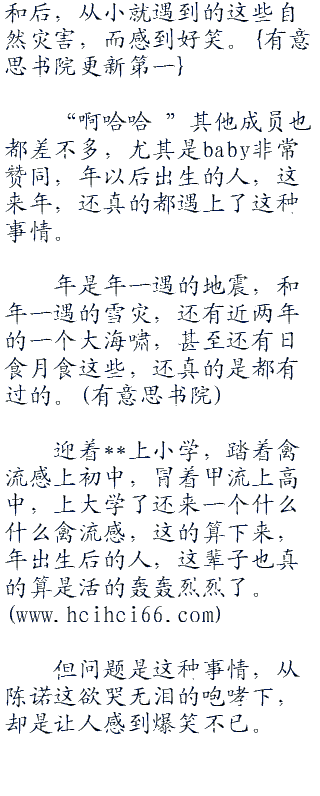 和后，从小就遇到的这些自
然灾害，而感到好笑。{有意
思书院更新第一}
“啊哈哈 ”其他成员也
都差不多，尤其是baby非常
赞同，年以后出生的人，这
来年，还真的都遇上了这种
事情。
年是年一遇的地震，和
年一遇的雪灾，还有近两年
的一个大海啸，甚至还有日
食月食这些，还真的是都有
过的。(有意思书院)
迎着**上小学，踏着禽
流感上初中，冒着甲流上高
中，上大学了还来一个什么
什么禽流感，这的算下来，
年出生后的人，这辈子也真
的算是活的轰轰烈烈了。
(www.hcihci66.com)
但问题是这种事情，从
陈诺这欲哭无泪的咆哮下，
却是让人感到爆笑不已。